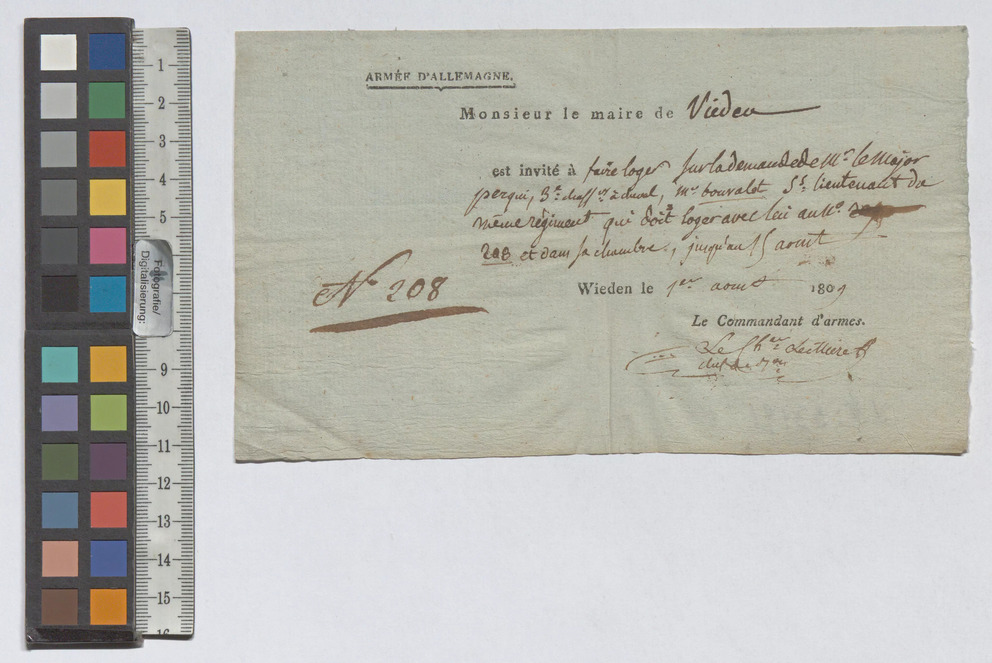 ARMÉE D'ALLEMAGNE.
Monsieur le maire de Vieden
est invité à faire loger sur la demande de Mr. le Major
perqui, 3e. chass. à cheval, Mr. bouvalet Ss. lieutenant du
même régiment qui doit loger avec lui au No.
208 et dans sa chambre, jusqu'au 15 aoust
No 208
Wieden le 1er aoust 1809
Le Commandant d'armes.
Le Cher
1
2
3
4
5
Fotografie/
Digitalisierung:
9
10
11
12
13
14
15
16